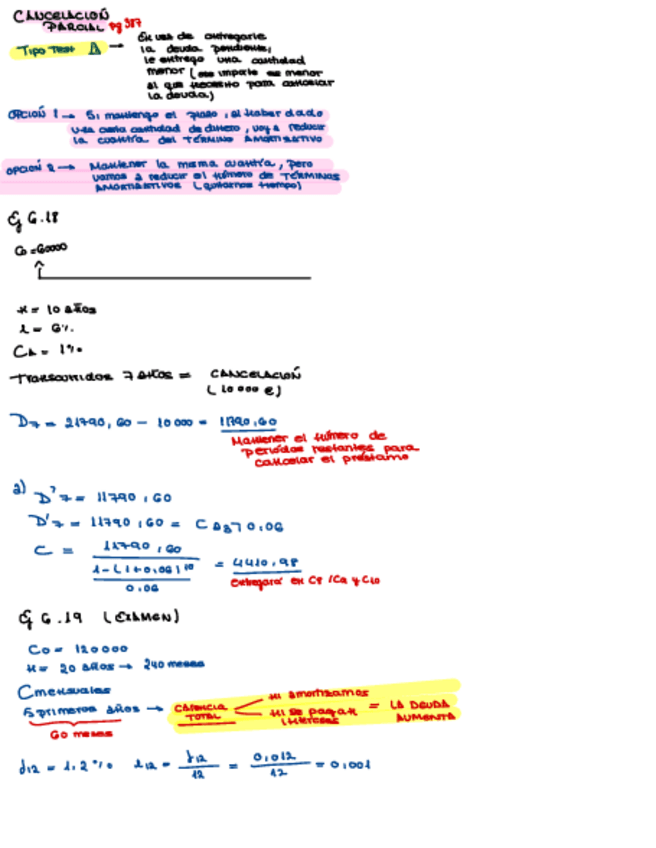 CANCELACIÓN
PARCIAL pg 387
TIPO TEST ⚠ → En vez de entregarle
la deuda pendiente,
le entrego una cantidad
menor (ese importe es menor
al que necesito para cancelar
la deuda)
OPCIÓN 1 → Si mantengo el plazo, al haber dado
una cierta cantidad de dinero, voy a reducir
la cuantía del TÉRMINO AMORTIZATIVO
OPCIÓN 2 → Mantener la misma cuantía, pero
vamos a reducir el número de TÉRMINOS
AMORTIZATIVOS (quitarnos tiempo)
Ej 6.18
C0 = 60000
n = 10 años
i = 6%
CA = 1%
Transcurridos 7 años = CANCELACIÓN
(10 000 €)
D7 = 21790,60 - 10 000 = 11790,60
Mantener el número de
periodos restantes para
cancelar el préstamo
a) D'7 = 11790,60
D'7 = 11790,60 = C a3¬0,06
C = 11790,60 / (1-(1+0,06)^10 / 0,06) = 4410,98
Entregará en C8, C9 y C10
Ej 6.19 (EXAMEN)
C0 = 120000
n = 20 años → 240 meses
C mensuales
5 primeros años → CARENCIA TOTAL < ni amortizamos / ni se pagan intereses = LA DEUDA AUMENTA
60 meses
j12 = 1,2% i12 = j12/12 = 0,012/12 = 0,001